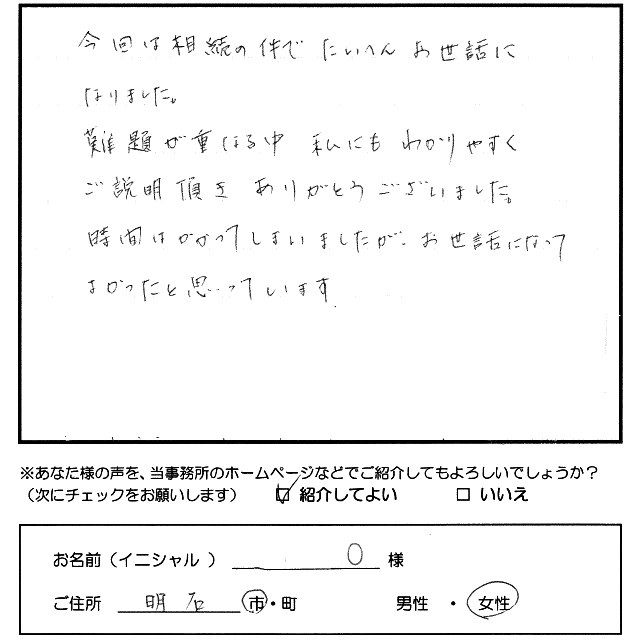 今回は相続の件でたいへんお世話に
なりました。
難題が重なる中 私にもわかりやすく
ご説明頂き ありがとうございました。
時間はかかってしまいましたが、お世話になって
よかったと思っています
※あなた様の声を、当事務所のホームページなどでご紹介してもよろしいでしょうか？
（次にチェックをお願いします） ☑ 紹介してよい □ いいえ
お名前（イニシャル） O 様
ご住所 明石 市・町 男性 ・ 女性